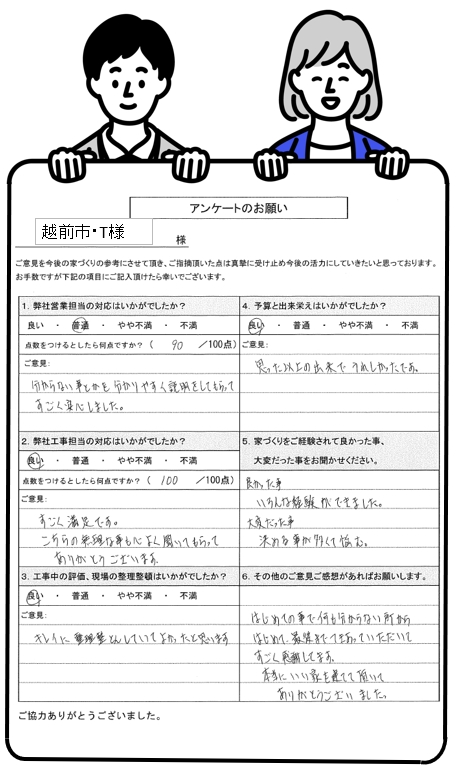 アンケートのお願い
越前市・T様
様
ご意見を今後の家づくりの参考にさせて頂き、ご指摘頂いた点は真摯に受け止め今後の活力にしていきたいと思っております。
お手数ですが下記の項目にご記入頂けたら幸いでございます。
1. 弊社営業担当の対応はいかがでしたか？
良い ・ 普通 ・ やや不満 ・ 不満
点数をつけるとしたら何点ですか？（ 90 /100点）
ご意見:
分からない事とかも分かりやすく説明をしてもらって
すごく安心しました。
2. 弊社工事担当の対応はいかがでしたか？
良い ・ 普通 ・ やや不満 ・ 不満
点数をつけるとしたら何点ですか？（ 100 /100点）
ご意見:
すごく満足です。
こちらの無理な事も心よく聞いてもらって
ありがとうございます。
3. 工事中の評価、現場の整理整頓はいかがでしたか？
良い ・ 普通 ・ やや不満 ・ 不満
ご意見:
キレイに整理整とんしていてよかったと思います
4. 予算と出来栄えはいかがでしたか？
良い ・ 普通 ・ やや不満 ・ 不満
ご意見:
思った以上の出来で うれしかったです。
5. 家づくりをご経験されて良かった事、
大変だった事をお聞かせください。
良かった事
いろんな経験ができました。
大変だった事
決める事が多くて悩む。
6. その他のご意見ご感想があればお願いします。
はじめての事で何も分からない所から
はじめて、最後までつきあっていただいて
すごく感謝してます。
本当にいい家を建てて頂いて
ありがとうございました。
ご協力ありがとうございました。